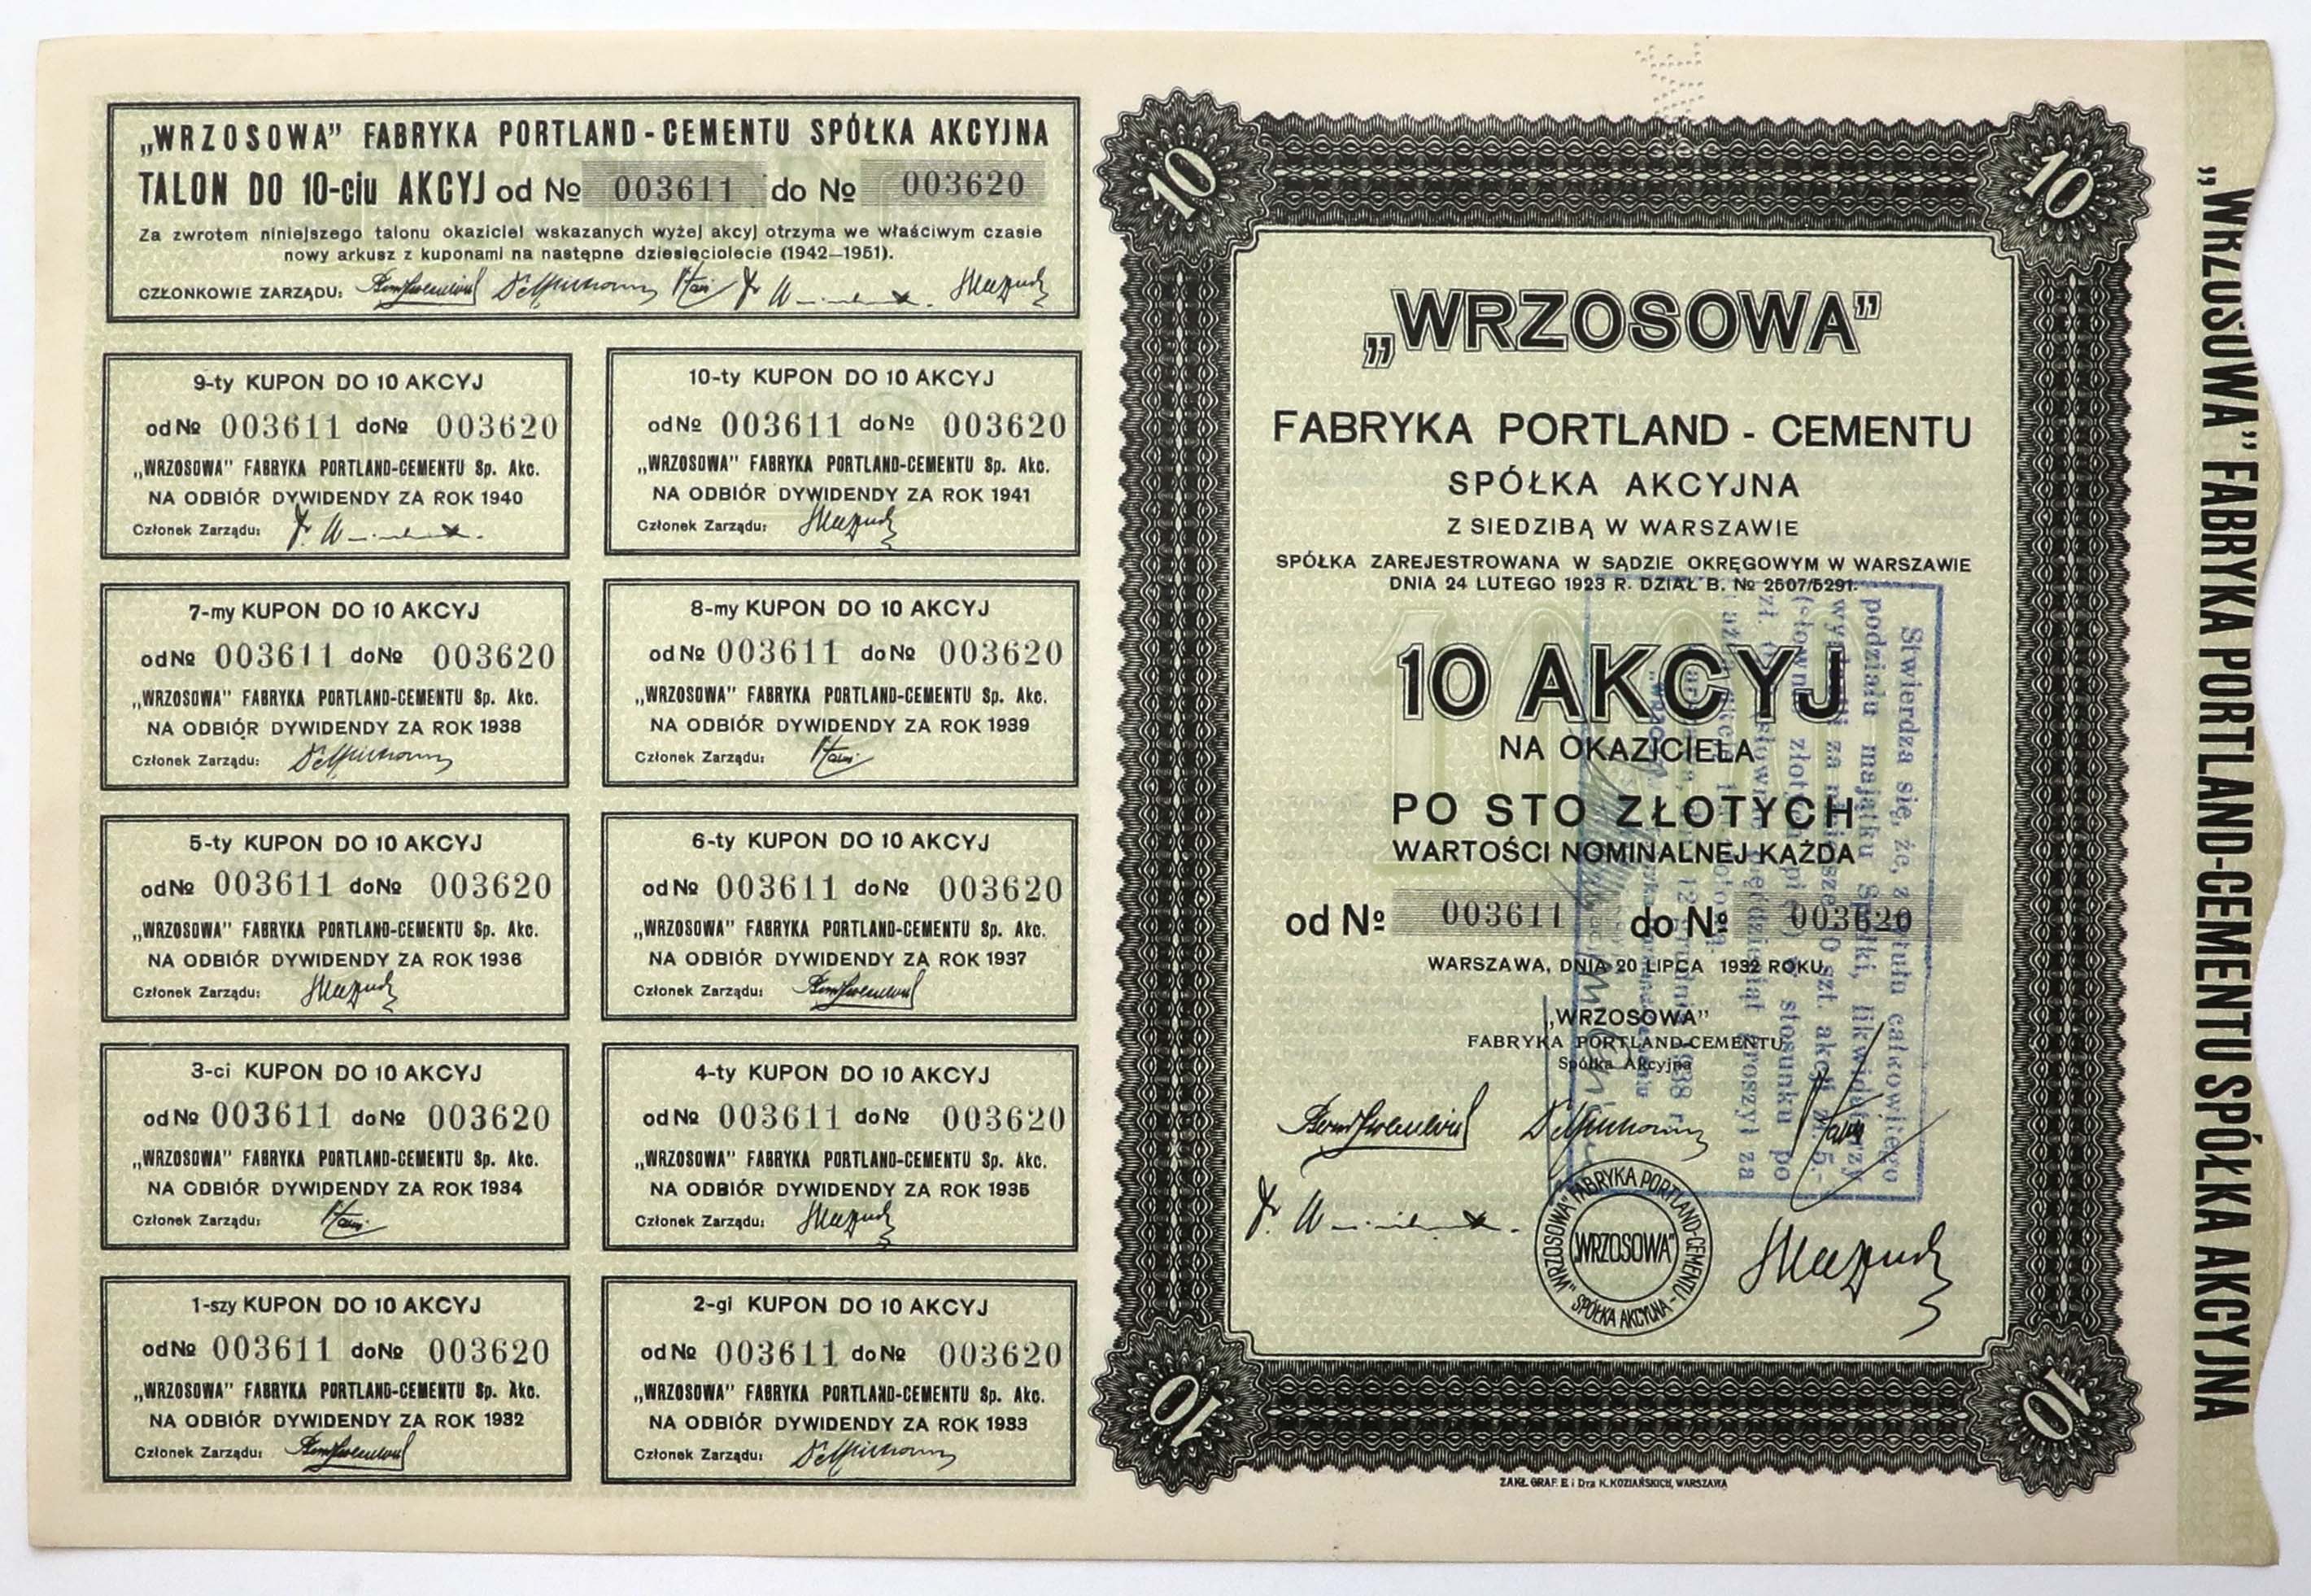 „WRZOSOWA” FABRYKA PORTLAND-CEMENTU SPÓŁKA AKCYJNA
TALON DO 10-ciu AKCYJ od № 003611 do № 003620
Za zwrotem niniejszego talonu okaziciel wskazanych wyżej akcyj otrzyma we właściwym czasie
nowy arkusz z kuponami na następne dziesięciolecie (1942—1951).
CZŁONKOWIE ZARZĄDU:
9-ty KUPON DO 10 AKCYJ
od № 003611 do № 003620
„WRZOSOWA” FABRYKA PORTLAND-CEMENTU Sp. Akc.
NA ODBIÓR DYWIDENDY ZA ROK 1940
Członek Zarządu:
10-ty KUPON DO 10 AKCYJ
od № 003611 do № 003620
„WRZOSOWA” FABRYKA PORTLAND-CEMENTU Sp. Akc.
NA ODBIÓR DYWIDENDY ZA ROK 1941
Członek Zarządu:
7-my KUPON DO 10 AKCYJ
od № 003611 do № 003620
„WRZOSOWA” FABRYKA PORTLAND-CEMENTU Sp. Akc.
NA ODBIÓR DYWIDENDY ZA ROK 1938
Członek Zarządu:
8-my KUPON DO 10 AKCYJ
od № 003611 do № 003620
„WRZOSOWA” FABRYKA PORTLAND-CEMENTU Sp. Akc.
NA ODBIÓR DYWIDENDY ZA ROK 1939
Członek Zarządu:
5-ty KUPON DO 10 AKCYJ
od № 003611 do № 003620
„WRZOSOWA” FABRYKA PORTLAND-CEMENTU Sp. Akc.
NA ODBIÓR DYWIDENDY ZA ROK 1936
Członek Zarządu:
6-ty KUPON DO 10 AKCYJ
od № 003611 do № 003620
„WRZOSOWA” FABRYKA PORTLAND-CEMENTU Sp. Akc.
NA ODBIÓR DYWIDENDY ZA ROK 1937
Członek Zarządu:
3-ci KUPON DO 10 AKCYJ
od № 003611 do № 003620
„WRZOSOWA” FABRYKA PORTLAND-CEMENTU Sp. Akc.
NA ODBIÓR DYWIDENDY ZA ROK 1934
Członek Zarządu:
4-ty KUPON DO 10 AKCYJ
od № 003611 do № 003620
„WRZOSOWA” FABRYKA PORTLAND-CEMENTU Sp. Akc.
NA ODBIÓR DYWIDENDY ZA ROK 1935
Członek Zarządu:
1-szy KUPON DO 10 AKCYJ
od № 003611 do № 003620
„WRZOSOWA” FABRYKA PORTLAND-CEMENTU Sp. Akc.
NA ODBIÓR DYWIDENDY ZA ROK 1932
Członek Zarządu:
2-gi KUPON DO 10 AKCYJ
od № 003611 do № 003620
„WRZOSOWA” FABRYKA PORTLAND-CEMENTU Sp. Akc.
NA ODBIÓR DYWIDENDY ZA ROK 1933
Członek Zarządu:
10
10
„WRZOSOWA”
FABRYKA PORTLAND - CEMENTU
SPÓŁKA AKCYJNA
Z SIEDZIBĄ W WARSZAWIE
SPÓŁKA ZAREJESTROWANA W SĄDZIE OKRĘGOWYM W WARSZAWIE
DNIA 24 LUTEGO 1923 R. DZIAŁ B. № 2507/5291.
10 AKCYJ
NA OKAZICIELA
PO STO ZŁOTYCH
WARTOŚCI NOMINALNEJ KAŻDA
od № 003611 do № 003620
WARSZAWA, DNIA 20 LIPCA 1932 ROKU.
„WRZOSOWA”
FABRYKA PORTLAND-CEMENTU
Spółka Akcyjna
„WRZOSOWA” FABRYKA PORTLAND-CEMENTU SPÓŁKA AKCYJNA
„WRZOSOWA”
10
10
ZAKŁ. GRAF. E i Dra K. KOZIAŃSKICH, WARSZAWA
Stwierdza się, że, z tytułu całkowitego
podziału majątku Spółki, likwidatorzy
„WRZOSOWA” FABRYKA PORTLAND-CEMENTU SPÓŁKA AKCYJNA